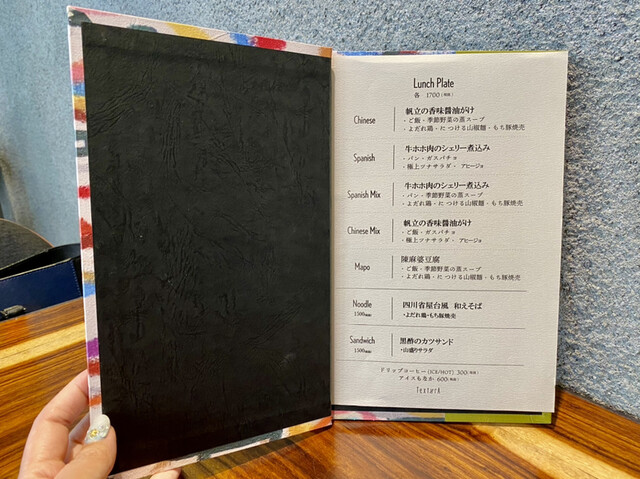 Lunch Plate
各 1700(税抜)
Chinese
帆立の香味醤油がけ
・ご飯・季節野菜の蒸スープ
・よだれ鶏・につける山椒麺・もち豚焼売
Spanish
牛ホホ肉のシェリー煮込み
・パン・ガスパチョ
・極上ツナサラダ・アヒージョ
Spanish Mix
牛ホホ肉のシェリー煮込み
・パン・季節野菜の蒸スープ
・よだれ鶏・につける山椒麺・もち豚焼売
Chinese Mix
帆立の香味醤油がけ
・ご飯・ガスパチョ
・極上ツナサラダ・アヒージョ
Mapo
陳麻婆豆腐
・ご飯・季節野菜の蒸スープ
・よだれ鶏・につける山椒麺・もち豚焼売
Noodle
1500(税抜)
四川省屋台風 和えそば
・よだれ鶏・もち豚焼売
Sandwich
1500(税抜)
黒酢のカツサンド
・山盛りサラダ
ドリップコーヒー(ICE/HOT) 300(税抜)
アイスもなか 600(税抜)
TexturA